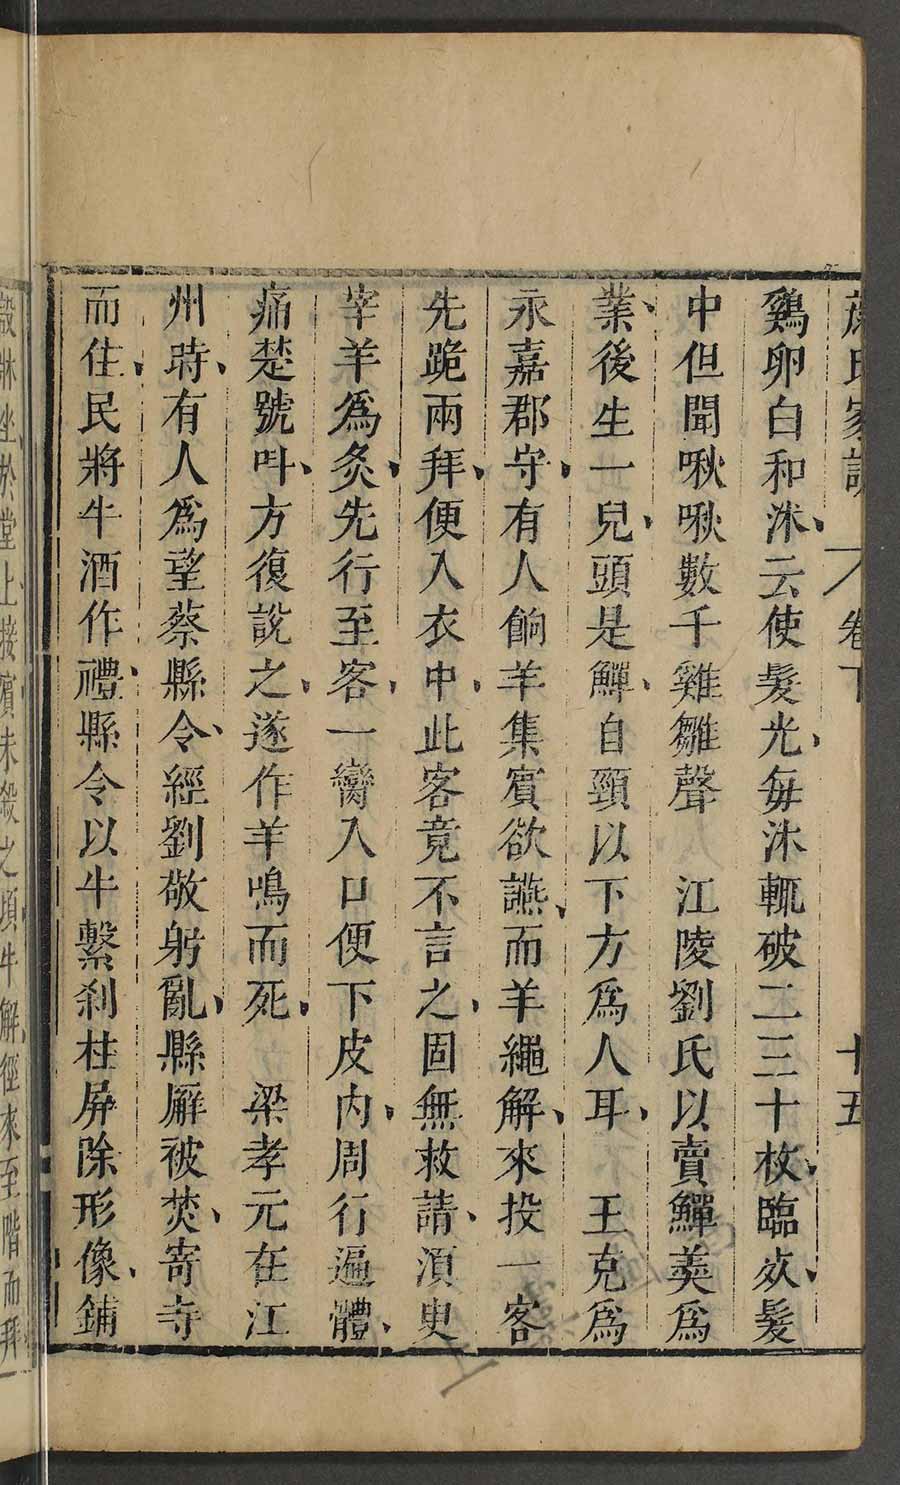 顔氏家訓 卷下 十五
鷄卵白和沐云使髮光每沐輒破二三十枚臨殁髮
中但聞啾啾數千雞雛聲 江陵劉氏以賣鱓羹爲
業後生一兒頭是鱓自頸以下方爲人耳 王克爲
永嘉郡守有人餉羊集賓欲讌而羊繩解來投一客
先跪兩拜便入衣中此客竟不言之固無救請湏臾
宰羊爲炙先行至客一臠入口便下皮内周行遍體
痛楚號叫方復説之遂作羊鳴而死 梁孝元在江
州時有人爲望蔡縣令經劉敬躬亂縣廨被焚寄寺
而住民將牛酒作禮縣令以牛繫刹柱屏除形像鋪
設牀坐於堂上接賓未殺之頃牛解徑來至階而拜